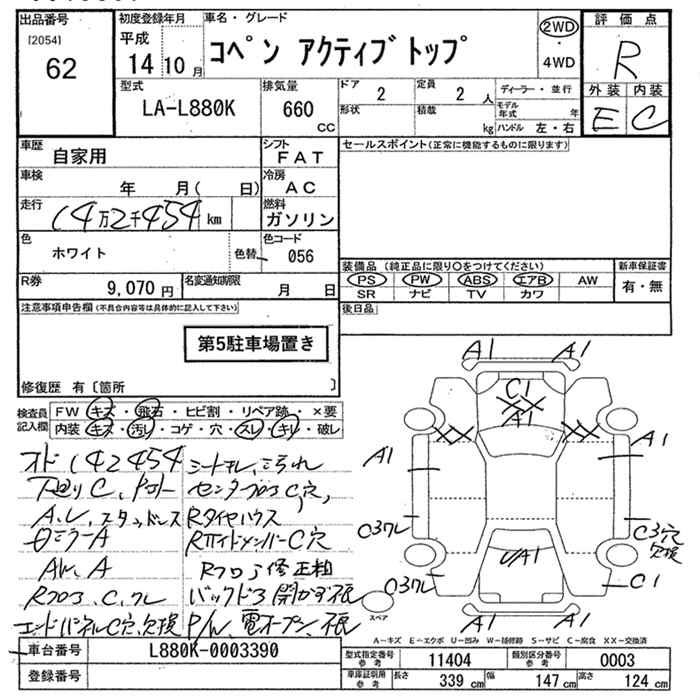 出品番号
[2054]
62
初度登録年月
平成
14 10 月
車名・グレード
コペン アクティブトップ
2WD
・
4WD
評価点
R
外装 内装
E C
型式
LA-L880K
排気量
660
CC
ドア 2
形状
定員 2 人
積載 kg
ディーラー・並行
モデル年式 年
ハンドル 左・右
車歴
自家用
シフト
FAT
車検
年 月( 日)
冷房
AC
走行
14万2千454 km
燃料
ガソリン
色
ホワイト
色替
色コード
056
R券
9,070 円
名変通知期限
月 日
セールスポイント(正常に機能するものに限ります)
装備品(純正品に限り○をつけてください)
PS PW ABS エアB AW
SR ナビ TV カワ
新車保証書
有・無
後日品
注意事項申告欄(不具合内容等は具体的に記入して下さい)
第5駐車場置き
修復歴 有〔箇所 〕
検査員記入欄
FW キズ・飛石・ヒビ割・リペア跡・×要
内装 キズ・汚レ・コゲ・穴・スレ・キレ・破レ
オド142454
下廻りC、
A.ル、スタッドレス
ミラーA
A
Rフロア、C、クレ
エンドパネルC穴、欠損
シートキレ、こすれ
センターフロアC穴、
Rタイヤハウス
RサイドメンバーC穴
Rフロア修正粗
バックドア開かず現
P/W、電オープン、不良
A1 A1
C1
XX
A1
XX XX
A1 A1
C3クレ C3穴
欠損
UA1
C3クレ C1
スペア
A1 A1
A-キズ E-エクボ U-凹み W-補修跡 S-サビ C-腐食 XX-交換済
車台番号
L880K-0003390
登録番号
型式指定番号
参考
11404
類別区分番号
参考
0003
車庫証明用
参考
長さ 339 cm 幅 147 cm 高さ 124 cm